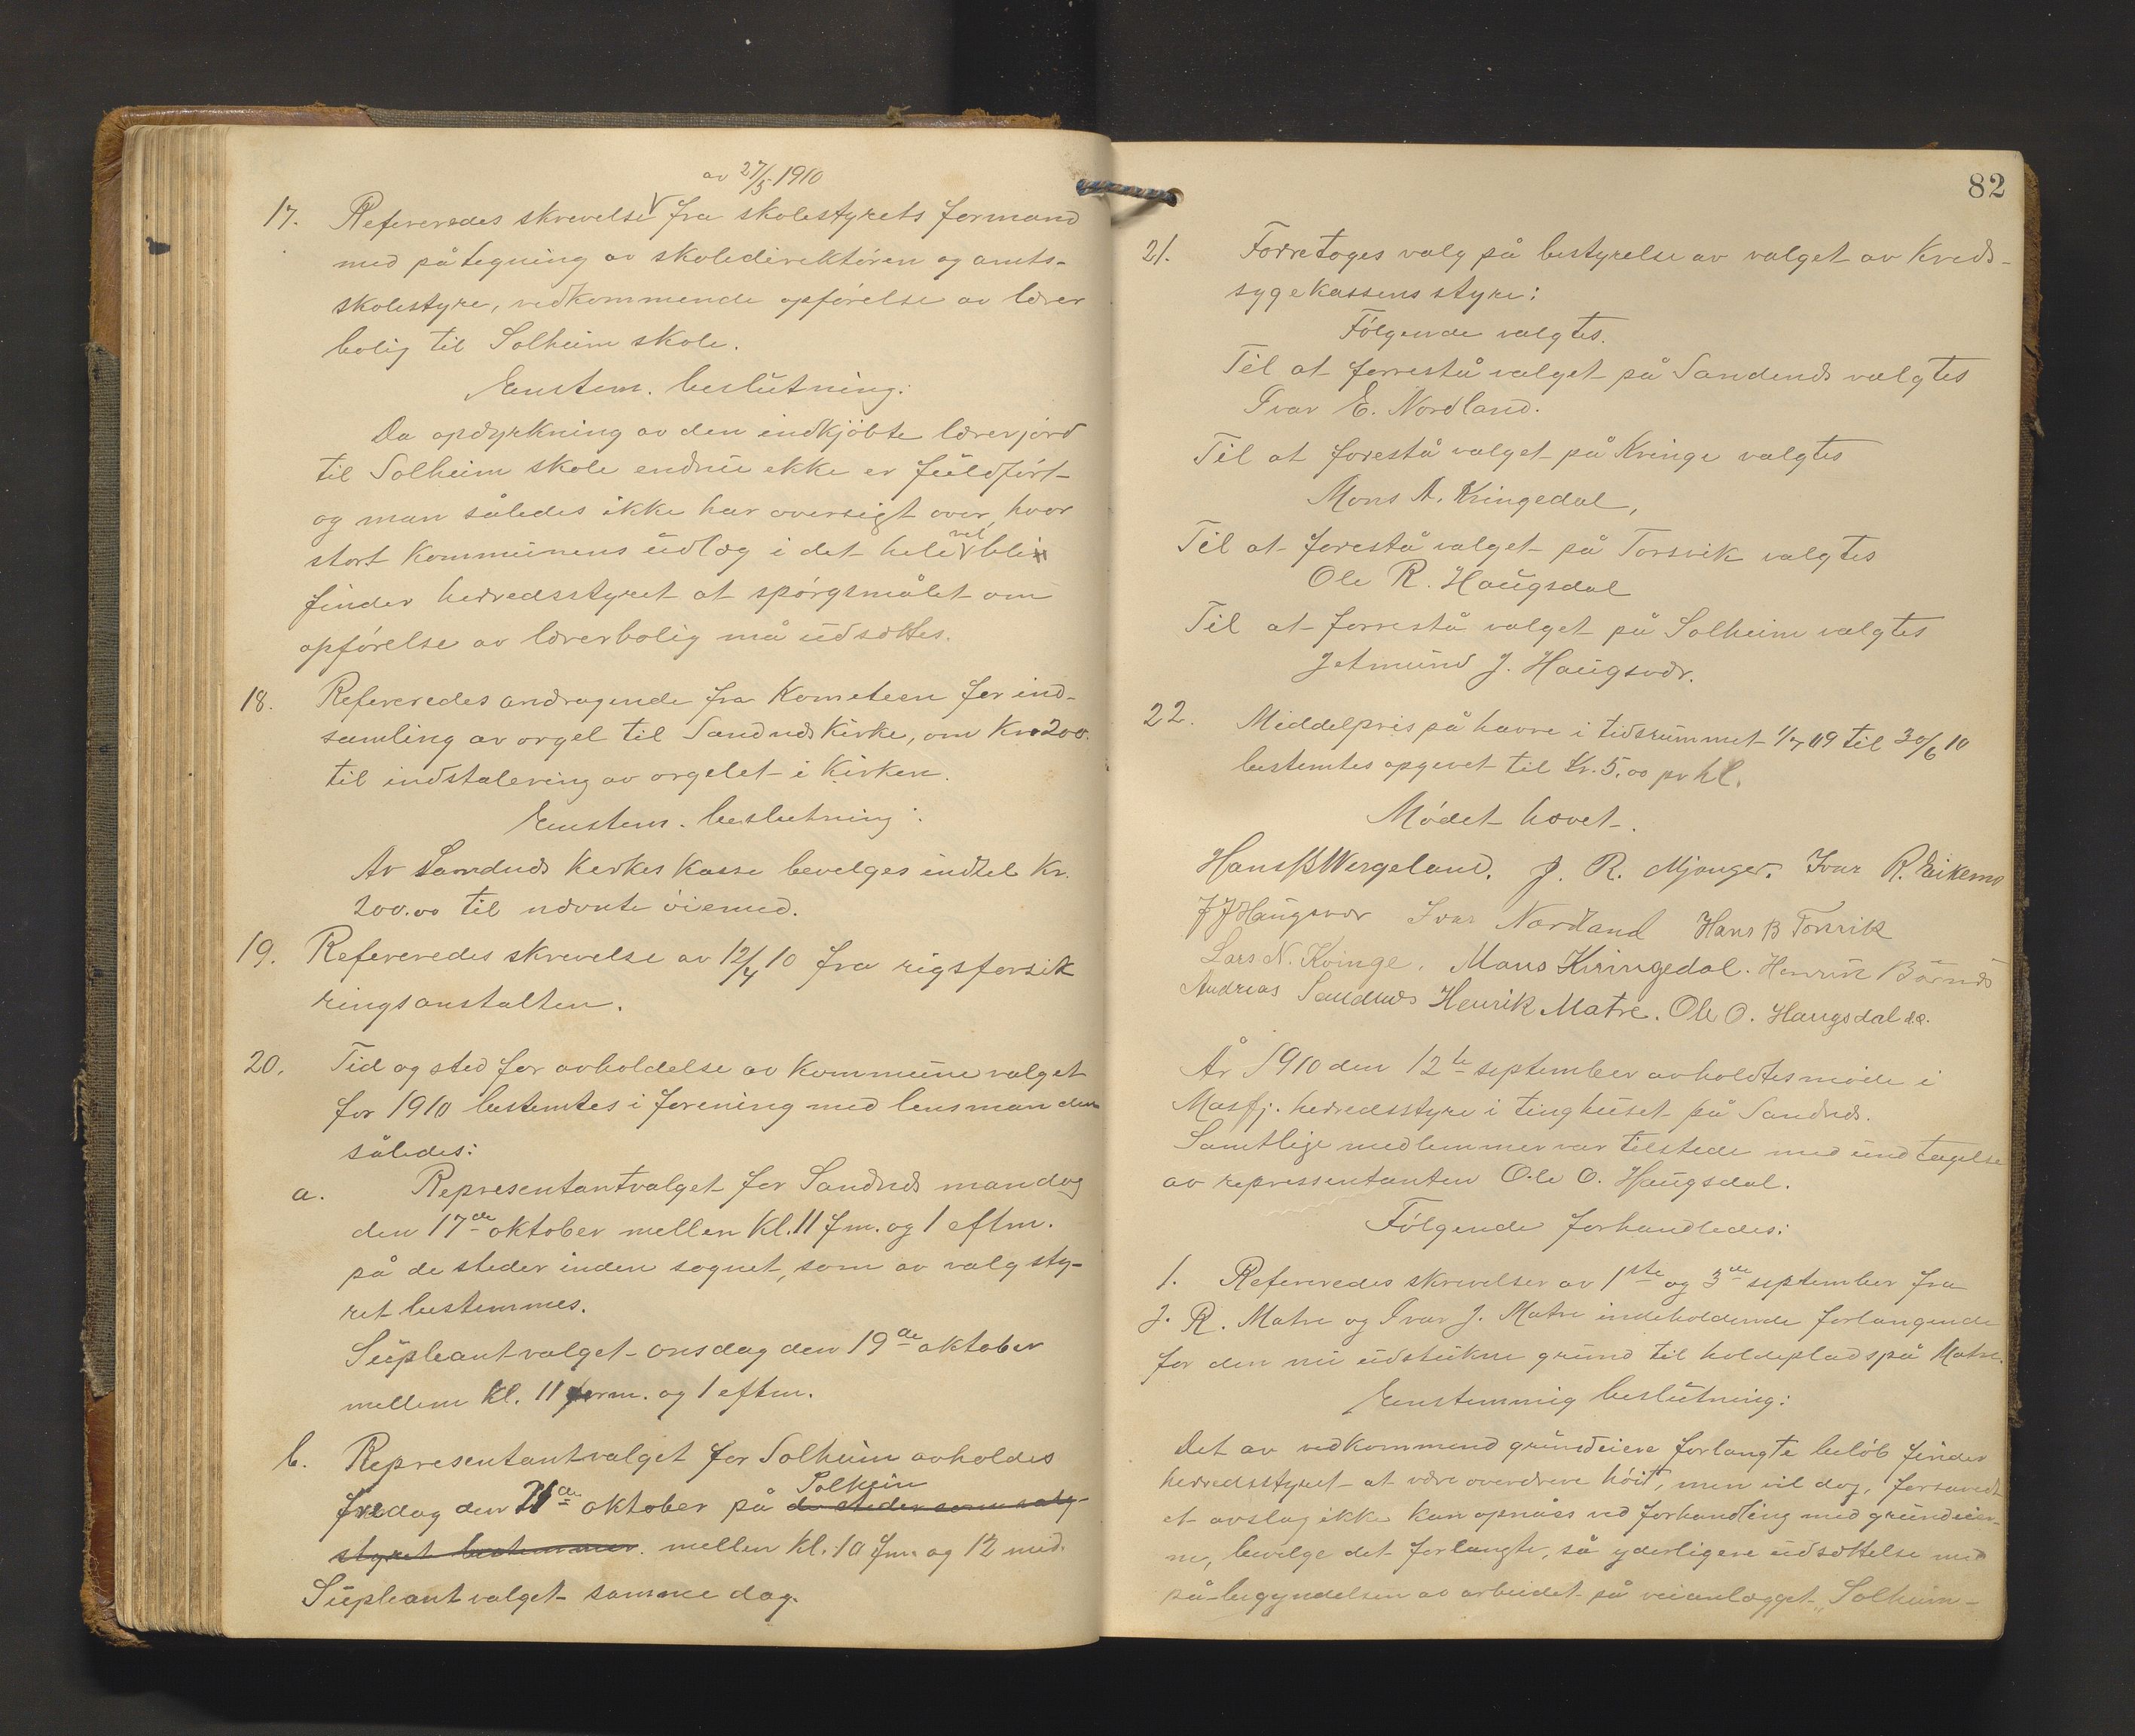 av 27/5 1910
17. Refereredes skrevelse fra skolestyrets formand
med påtegning av skoledirektören og amts-
skolestyre, vedkommende opförelse av lærer
bolig til Solheim skole.
Enstem. beslutning:
Da opdyrkning av den indkjöbte lærerjord
til Solheim skole endnu ikke er fuldfört
og man således ikke har oversigt over, hvor
stort kommunens udlæg i det hele vil bli
finder herredsstyret at spörgsmålet om
opförelse av lærerbolig må udsættes.
18. Refereredes andragende fra Kometeen for ind-
samling av orgel til Sandnds Kirke, om Kr. 200.
til indstalering av orgelet i Kirken.
Enstem. beslutning:
Av Sandnds Kerkes Kasse bevelges indtel Kr.
200.00 til nævnte öiemed.
19. Refereredes skrevelse av 12/4 10 fra rigsforsik
ringsanstalten.
20. Tid og sted for avholdelse av Kommunevalget
for 1910 bestemtes i forening med lensmanden
således:
a. Representantvalget for Sandnds mandag
den 17de oktober mellen kl. 11 fm. og 1 eftm.
på de steder inden sognet, som av valgsty-
ret bestemmes.
Supleantvalget onsdag den 19de oktober
mellem kl. 11 form. og 1 eftm.
b. Representantvalget for Solheim avholdes
Solheim
fredag den 21de oktober på de steder som valg-
styret bestemmer. mellen kl. 10 fm. og 12 mid.
Supleantvalget samme dag.
82
21. Forretoges valg på bestyrelse av valget av Kreds-
sygekassens styre:
Fölgende valgtes.
Til at forrestå valget på Sandnds valgtes
Ivar E. Nordland.
Til at forestå valget på Kvinge valgtes
Mons A. Kringedal,
Til at forestå valget på Torsvik valgtes
Ole R. Haugsdal
Til at forrestå valget på Solheim valgtes
Jetmund J. Haugsvær.
22. Middelpris på havre i tidsrummet 1/7 09 til 30/6 10
bestemtes opgevet til Kr. 5.00 pr hl.
Mödet hævet.
Hans B Wergeland. J. R. Mjanger. Ivar R. Eikemo
J J Haugsvær Ivar Nordland Hans B Torsvik
Lars N. Kvinge. Mons Kringedal. Henrik Börnds
Andreas Sandnds Henrik Matre. Ole O. Haugsdal
År 1910 den 12te september avholdtes möde i
Masfj. herredsstyre i tinghuset på Sandnds.
Samtlige medlemmer var tilstede med undtagelse
av repressentanten Ole O. Haugsdal.
Fölgende forhandledes:
1. Refereredes skrevelser av 1ste og 3de september fra
J. R. Matre og Ivar J. Matre indeholdende forlangende
for den nu udstukne grund til holdeplads på Matre.
Enstemmig beslutning:
Det av vedkommend grundeiere forlangte belöb finder
herredsstyret at være overdreve höit, men vil dog, forsavedt
et avslag ikke kan opnåes ved forhandling med grundeier-
ne, bevelge det forlangte, så yderligere udsættelse med
på-begyndelsen av arbeidet på veianlægget "Solheim-